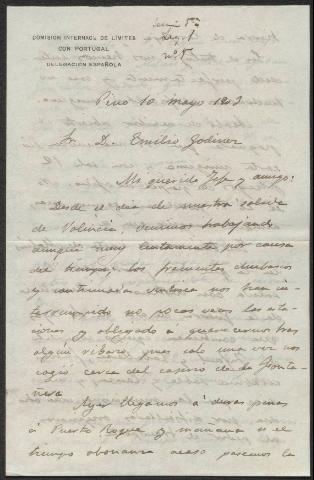 COMISIÓN INTERNAC. DE LÍMITES
CON PORTUGAL
DELEGACIÓN ESPAÑOLA
Leg. 1
nº 5
Pino 10 mayo 1903
Sr. D. Emilio Godinez
Mi querido Jefe y amigo:
Desde el dia de nuestra salida
de Valencia, venimos trabajando
aunque muy lentamente por causa
del tiempo; los frecuentes chubascos
y continuada ventosa nos han in-
terrumpido no pocas veces las esta-
ciones y obligado á guarecernos tras
algún ribazo, pues solo una vez nos
cogió cerca del casero de la Fonta-
ñera
Ayer llegamos á duras penas
á Puerto Roque y mañana si el
tiempo abonanza acaso pasemos la